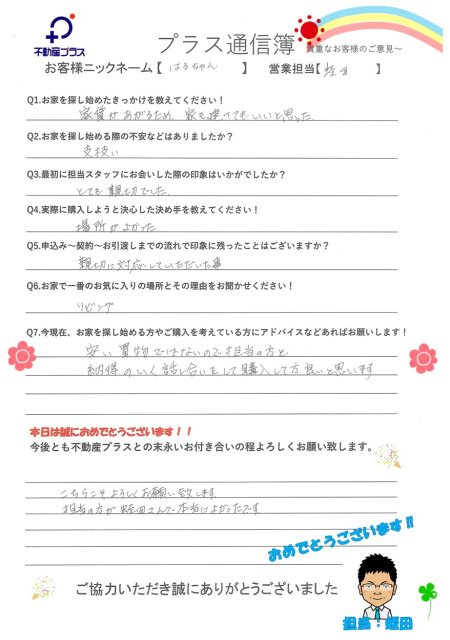 不動産プラス
プラス通信簿 ～貴重なお客様のご意見～
お客様ニックネーム【 はるちゃん 】 営業担当【 蛭田 】
Q1.お家を探し始めたきっかけを教えてください！
家賃があがるため、家を建ててもいいと思った
Q2.お家を探し始める際の不安などはありましたか？
支払い
Q3.最初に担当スタッフにお会いした際の印象はいかがでしたか？
とても親切でした。
Q4.実際に購入しようと決心した決め手を教えてください！
場所がよかった
Q5.申込み～契約～お引渡しまでの流れで印象に残ったことはございますか？
親切に対応していただいた事
Q6.お家で一番のお気に入りの場所とその理由をお聞かせください！
リビング
Q7.今現在、お家を探し始める方やご購入を考えている方にアドバイスなどあればお願いします！
安い買物ではないので担当の方と
納得のいく話し合いをして購入して方良いと思います
本日は誠におめでとうございます！！
今後とも不動産プラスとの末永いお付き合いの程よろしくお願い致します。
こちらこそよろしくお願い致します
担当の方が蛭田さんで本当によかったです。
おめでとうございます!!
ご協力いただき誠にありがとうございました
担当：蛭田